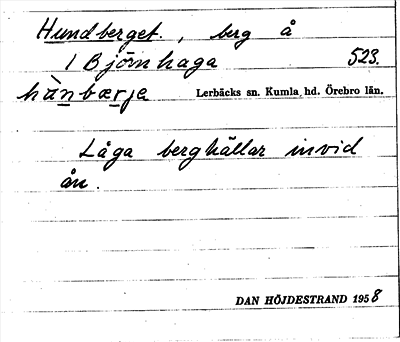 Hundberget., berg å
1 Björnhaga 523.
hànbærje Lerbäcks sn. Kumla hd. Örebro län.
Låga berghällar invid
ån.
DAN HÖJDESTRAND 1958